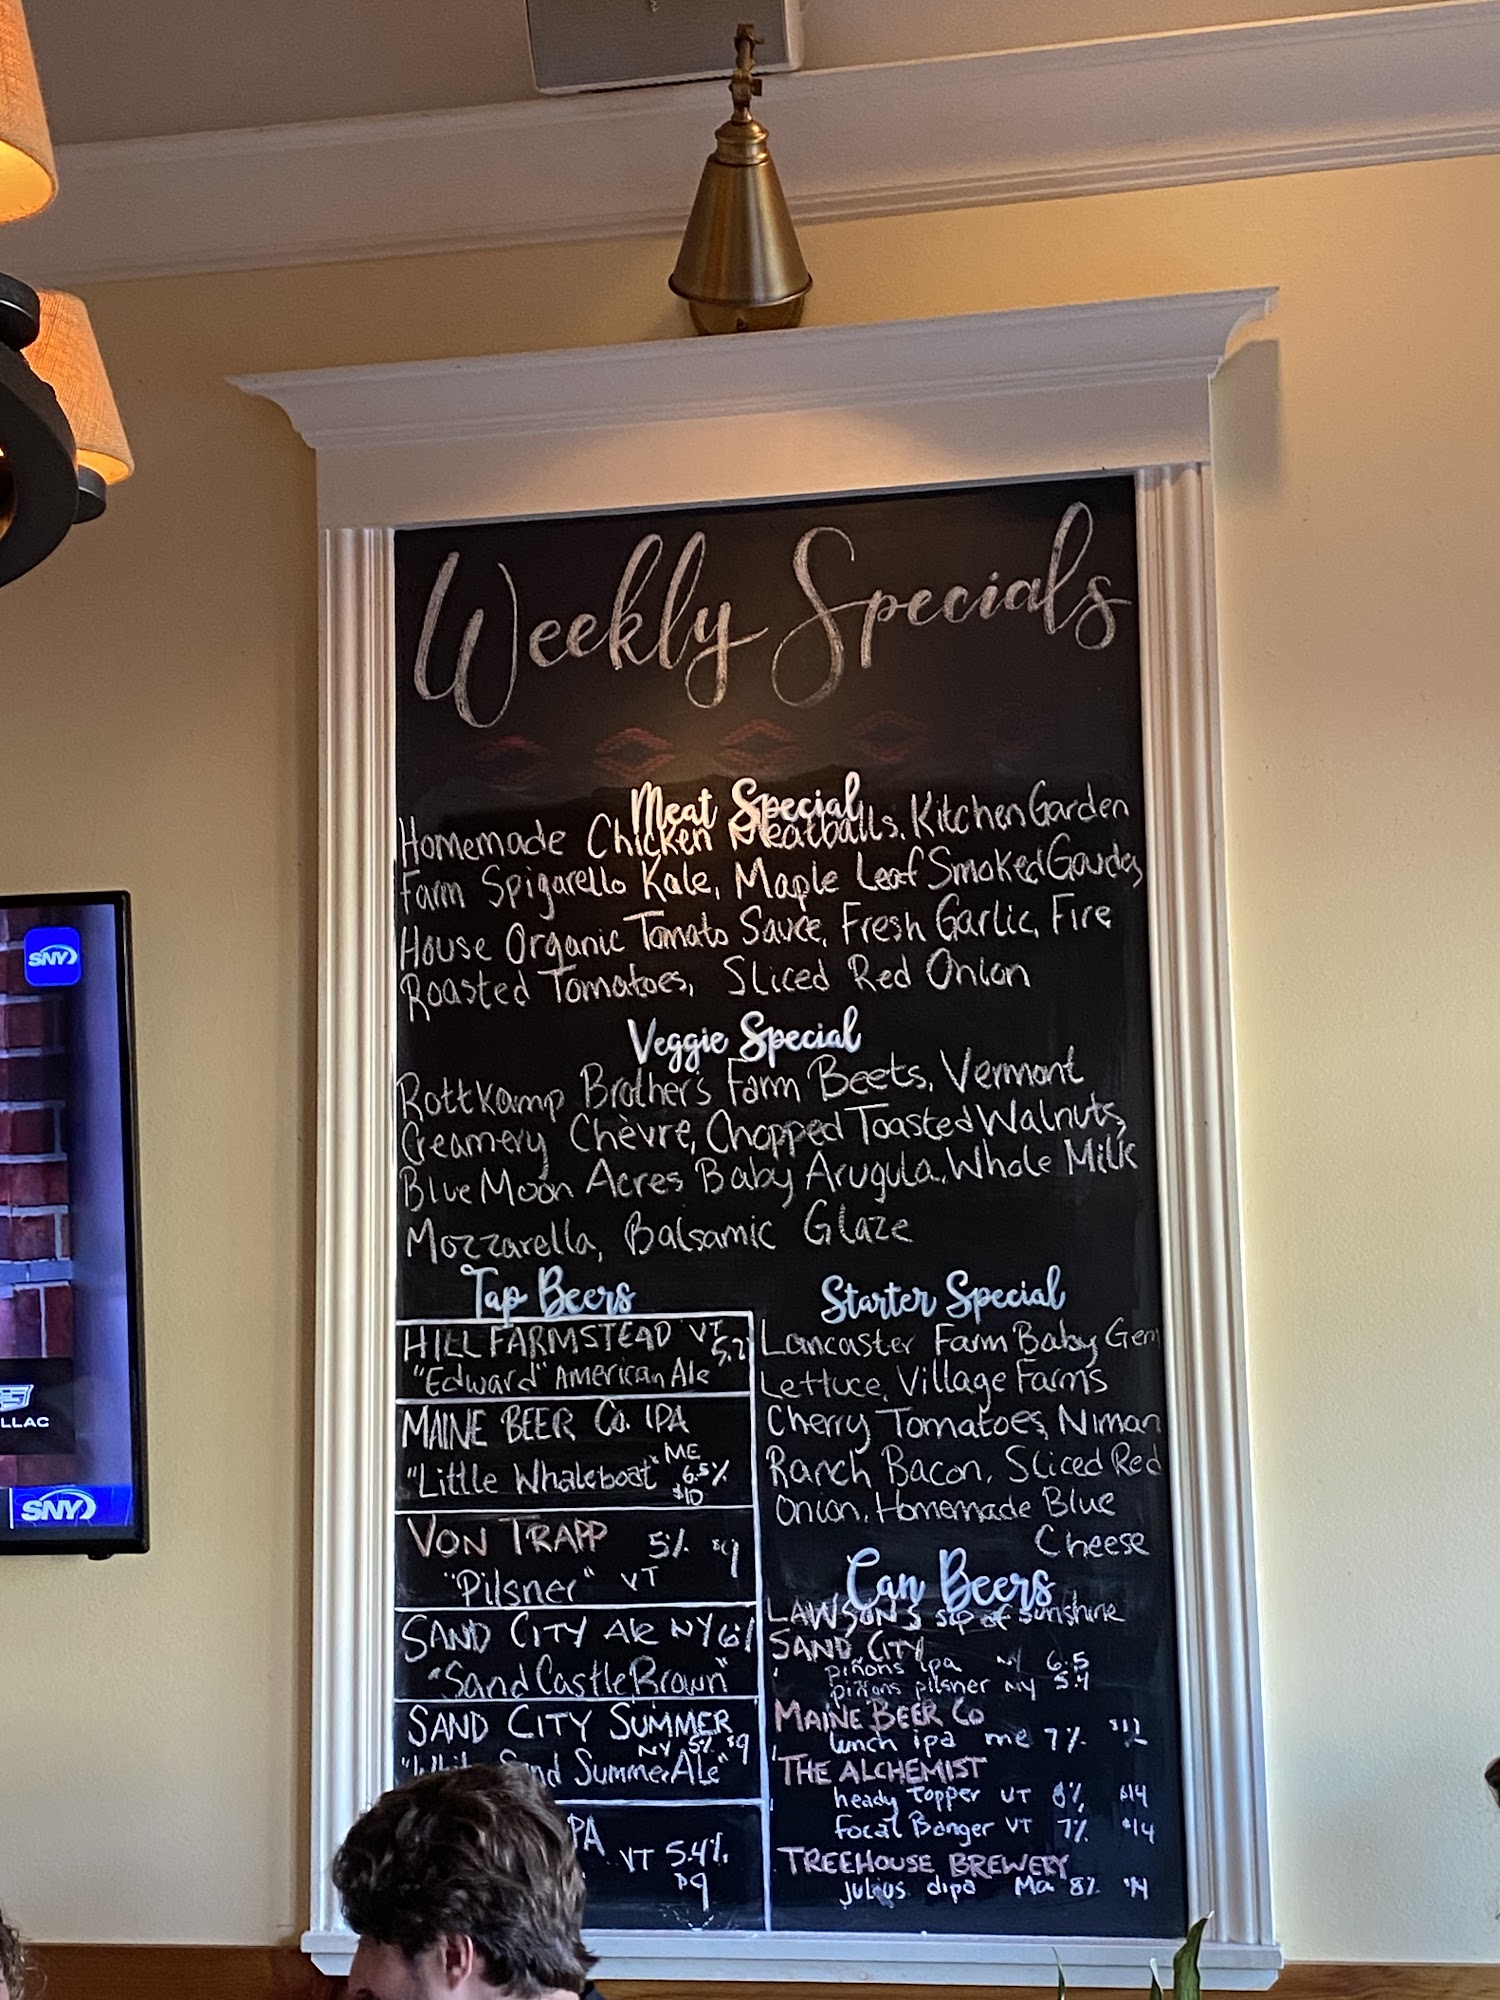 Weekly Specials
Meat Special
Homemade Chicken Meatballs, Kitchen Garden
Farm Spigarello Kale, Maple Leaf Smoked Gouda,
House Organic Tomato Sauce, Fresh Garlic, Fire
Roasted Tomatoes, Sliced Red Onion
Veggie Special
Rottkamp Brother's Farm Beets, Vermont
Creamery Chèvre, Chopped Toasted Walnuts,
Blue Moon Acres Baby Arugula, Whole Milk
Mozzarella, Balsamic Glaze
Tap Beers
HILL FARMSTEAD VT
5.2
"Edward" American Ale
MAINE BEER Co. IPA
"Little Whaleboat" ME
6.5%
$10
VON TRAPP 5% $9
"Pilsner" VT
SAND CITY Ale NY 6%
"Sand Castle Brown"
SAND CITY SUMMER
NY 5% $9
Sand Summer Ale"
PA
VT 5.4%
$9
Starter Special
Lancaster Farm Baby Gem
Lettuce, Village Farms
Cherry Tomatoes, Niman
Ranch Bacon, Sliced Red
Onion, Homemade Blue
Cheese
Can Beers
LAWSON'S sip of sunshine
SAND CITY
piñons ipa NY 6.5
piñons pilsner NY 5.4
MAINE BEER Co
lunch ipa me 7% $12
THE ALCHEMIST
heady topper VT 8% $14
focal Banger VT 7% $14
TREEHOUSE BREWERY
julius dipa Ma 8% $14
SNY
LLAC
SNY